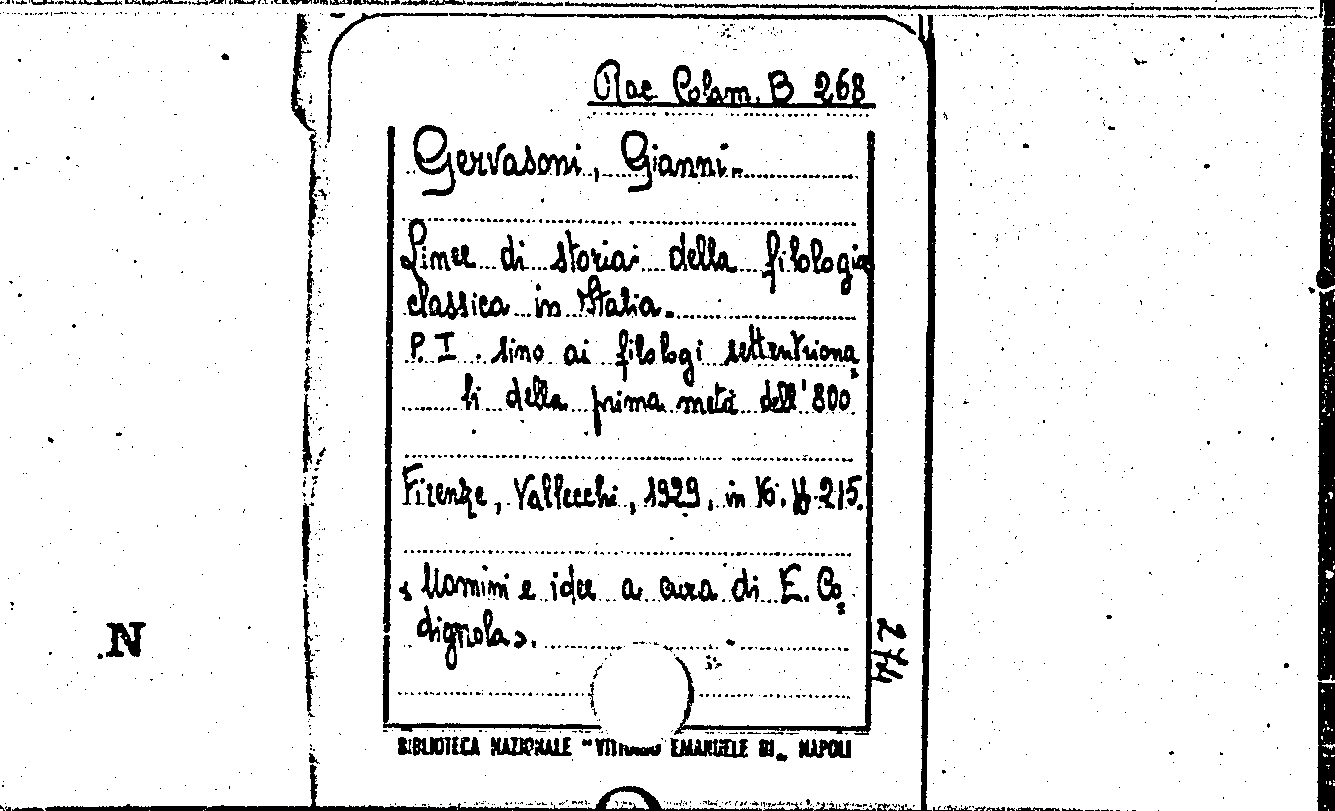 Rac Colam. B 268
Gervasoni, Gianni.
Linee di storia della filologia
classica in Italia.
P. I. sino ai filologi settentriona=
li della prima metà dell'800
Firenze, Vallecchi, 1929, in 16. pp. 215.
«Uomini e idee a cura di E. Co=
dignola».
274
N
BIBLIOTECA NAZIONALE "VITTORIO EMANUELE III„ NAPOLI